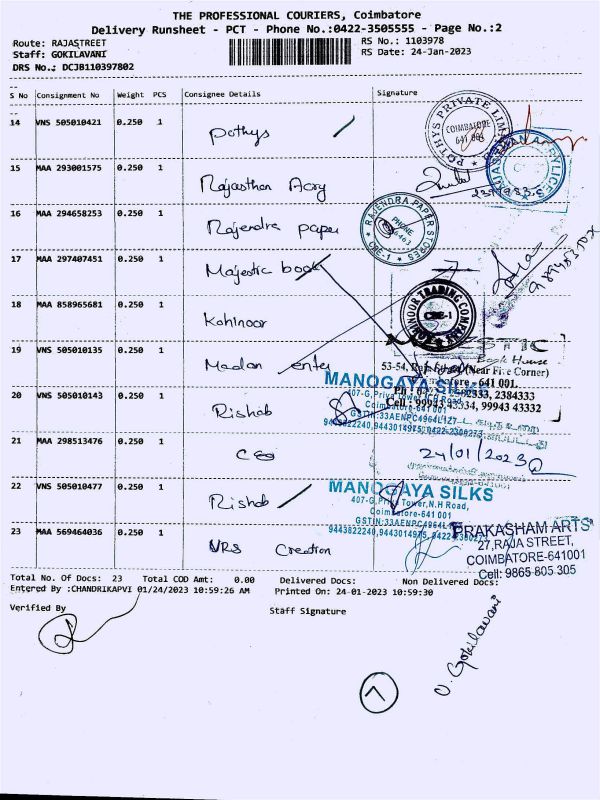 THE PROFESSIONAL COURIERS, Coimbatore
Delivery Runsheet - PCT - Phone No.:0422-3505555 - Page No.:2
Route: RAJASTREET
RS No.: 1103978
Staff: GOKILAVANI
RS Date: 24-Jan-2023
DRS No.: DCJ8110397802
S No Consignment No Weight PCS Consignee Details Signature
14 VNS 505010421 0.250 1 Pothys
POTHYS PRIVATE LIM
COIMBATORE
641 001
15 MAA 293001575 0.250 1 Rajasthan Acry
16 MAA 294658253 0.250 1 Rajendra paper
RAJENDRA PAPER STORES
PHONE
CBE-1
17 MAA 297407451 0.250 1 Majestic book
18 MAA 858965681 0.250 1 Kohinoor
KOHINOOR TRADING COMPANY
CBE-1
19 VNS 505010135 0.250 1 Madan enter
ESTIC
Book House
53-54, (Near Five Corner)
- 641 001.
2384333
Cell : 99943 43334, 99943 43332
20 VNS 505010143 0.250 1 Rishab
MANOGAYA SILKS
407-G, Priya Tower, N.H Road,
Coimbatore-641 001
GSTIN:33AENPC4964L1Z7
9443822240,9443014975, 0422-2380273
21 MAA 298513476 0.250 1 CEO
24/01/2023
22 VNS 505010477 0.250 1 Rishab
MANOGAYA SILKS
407-G, Priya Tower, N.H Road,
Coimbatore-641 001
GSTIN:33AENPC4964L
9443822240,9443014975,
23 MAA 569464036 0.250 1 VRS Creation
PRAKASHAM ARTS
27,RAJA STREET,
COIMBATORE-641001
Cell: 9865 805 305
Total No. Of Docs: 23 Total COD Amt: 0.00 Delivered Docs: Non Delivered Docs:
Entered By :CHANDRIKAPVI 01/24/2023 10:59:26 AM Printed On: 24-01-2023 10:59:30
Verified By Staff Signature
O. Gokilavani
7